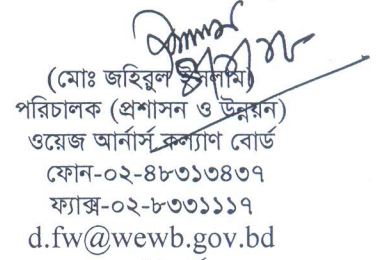 (মোঃ জহিরুল ইসলাম)
পরিচালক (প্রশাসন ও উন্নয়ন)
ওয়েজ আর্নার্স কল্যাণ বোর্ড
ফোন-০২-৪৮৩১৩৪৩৭
ফ্যাক্স-০২-৮৩৩১১১৭
d.fw@wewb.gov.bd